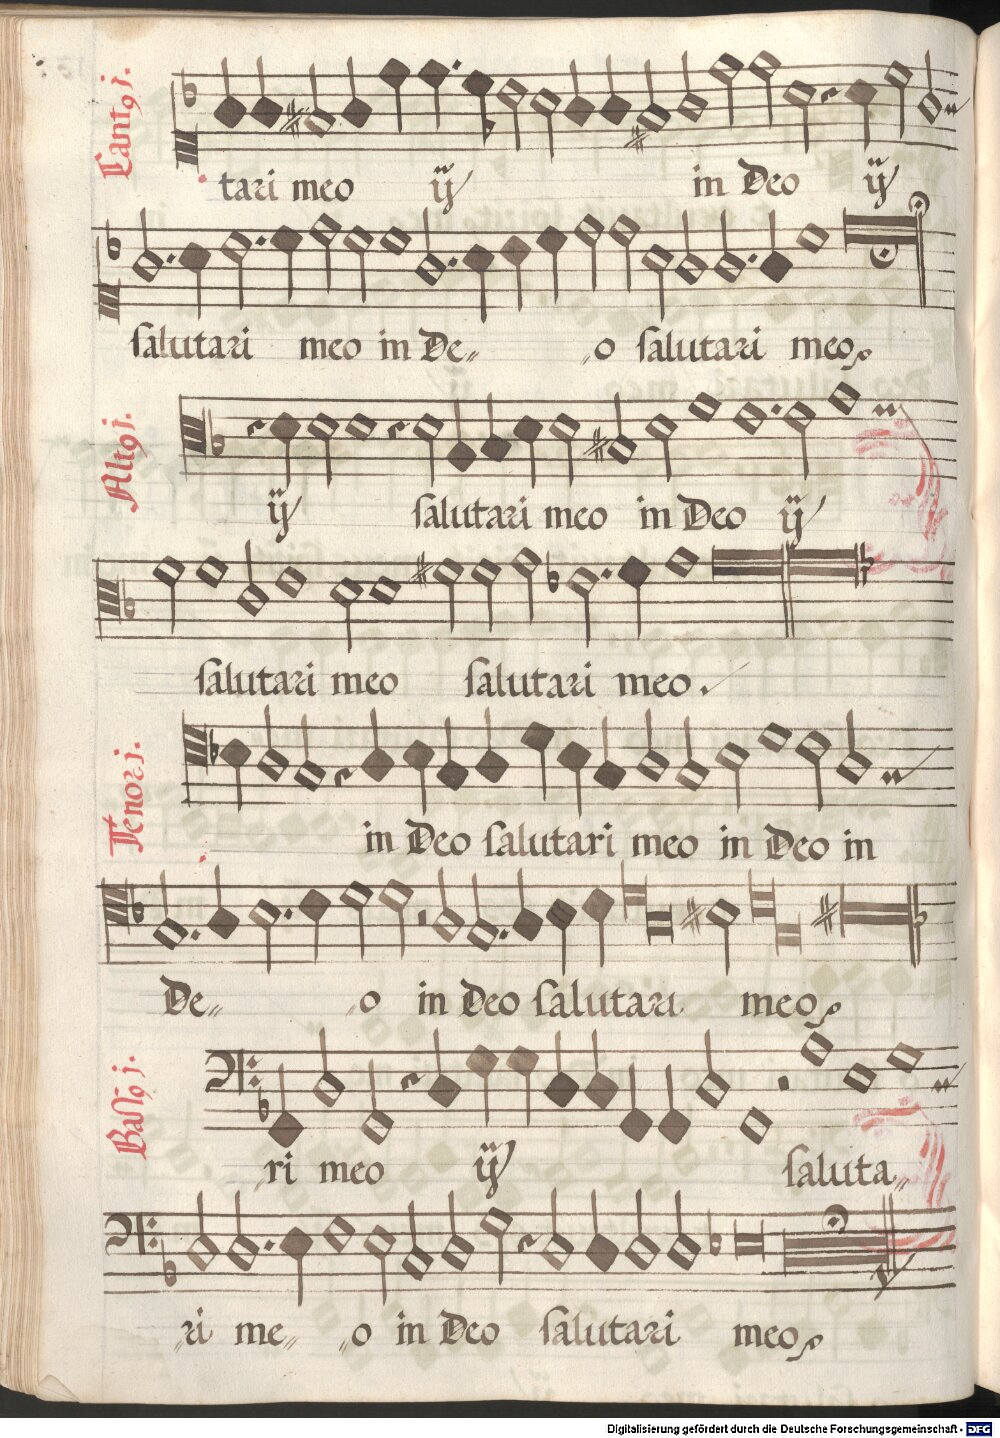 Cantꝰ j.
tari meo ij in Deo ij
salutari meo in De- -o salutari meo
Altꝰ j.
ij salutari meo in Deo ij
salutari meo salutari meo.
Tenor j.
in Deo salutari meo in Deo in
De- -o in Deo salutari meo
Bassꝰ j.
-ri meo ij saluta-
-ri me- -o in Deo salutari meo
Digitalisierung gefördert durch die Deutsche Forschungsgemeinschaft - DFG